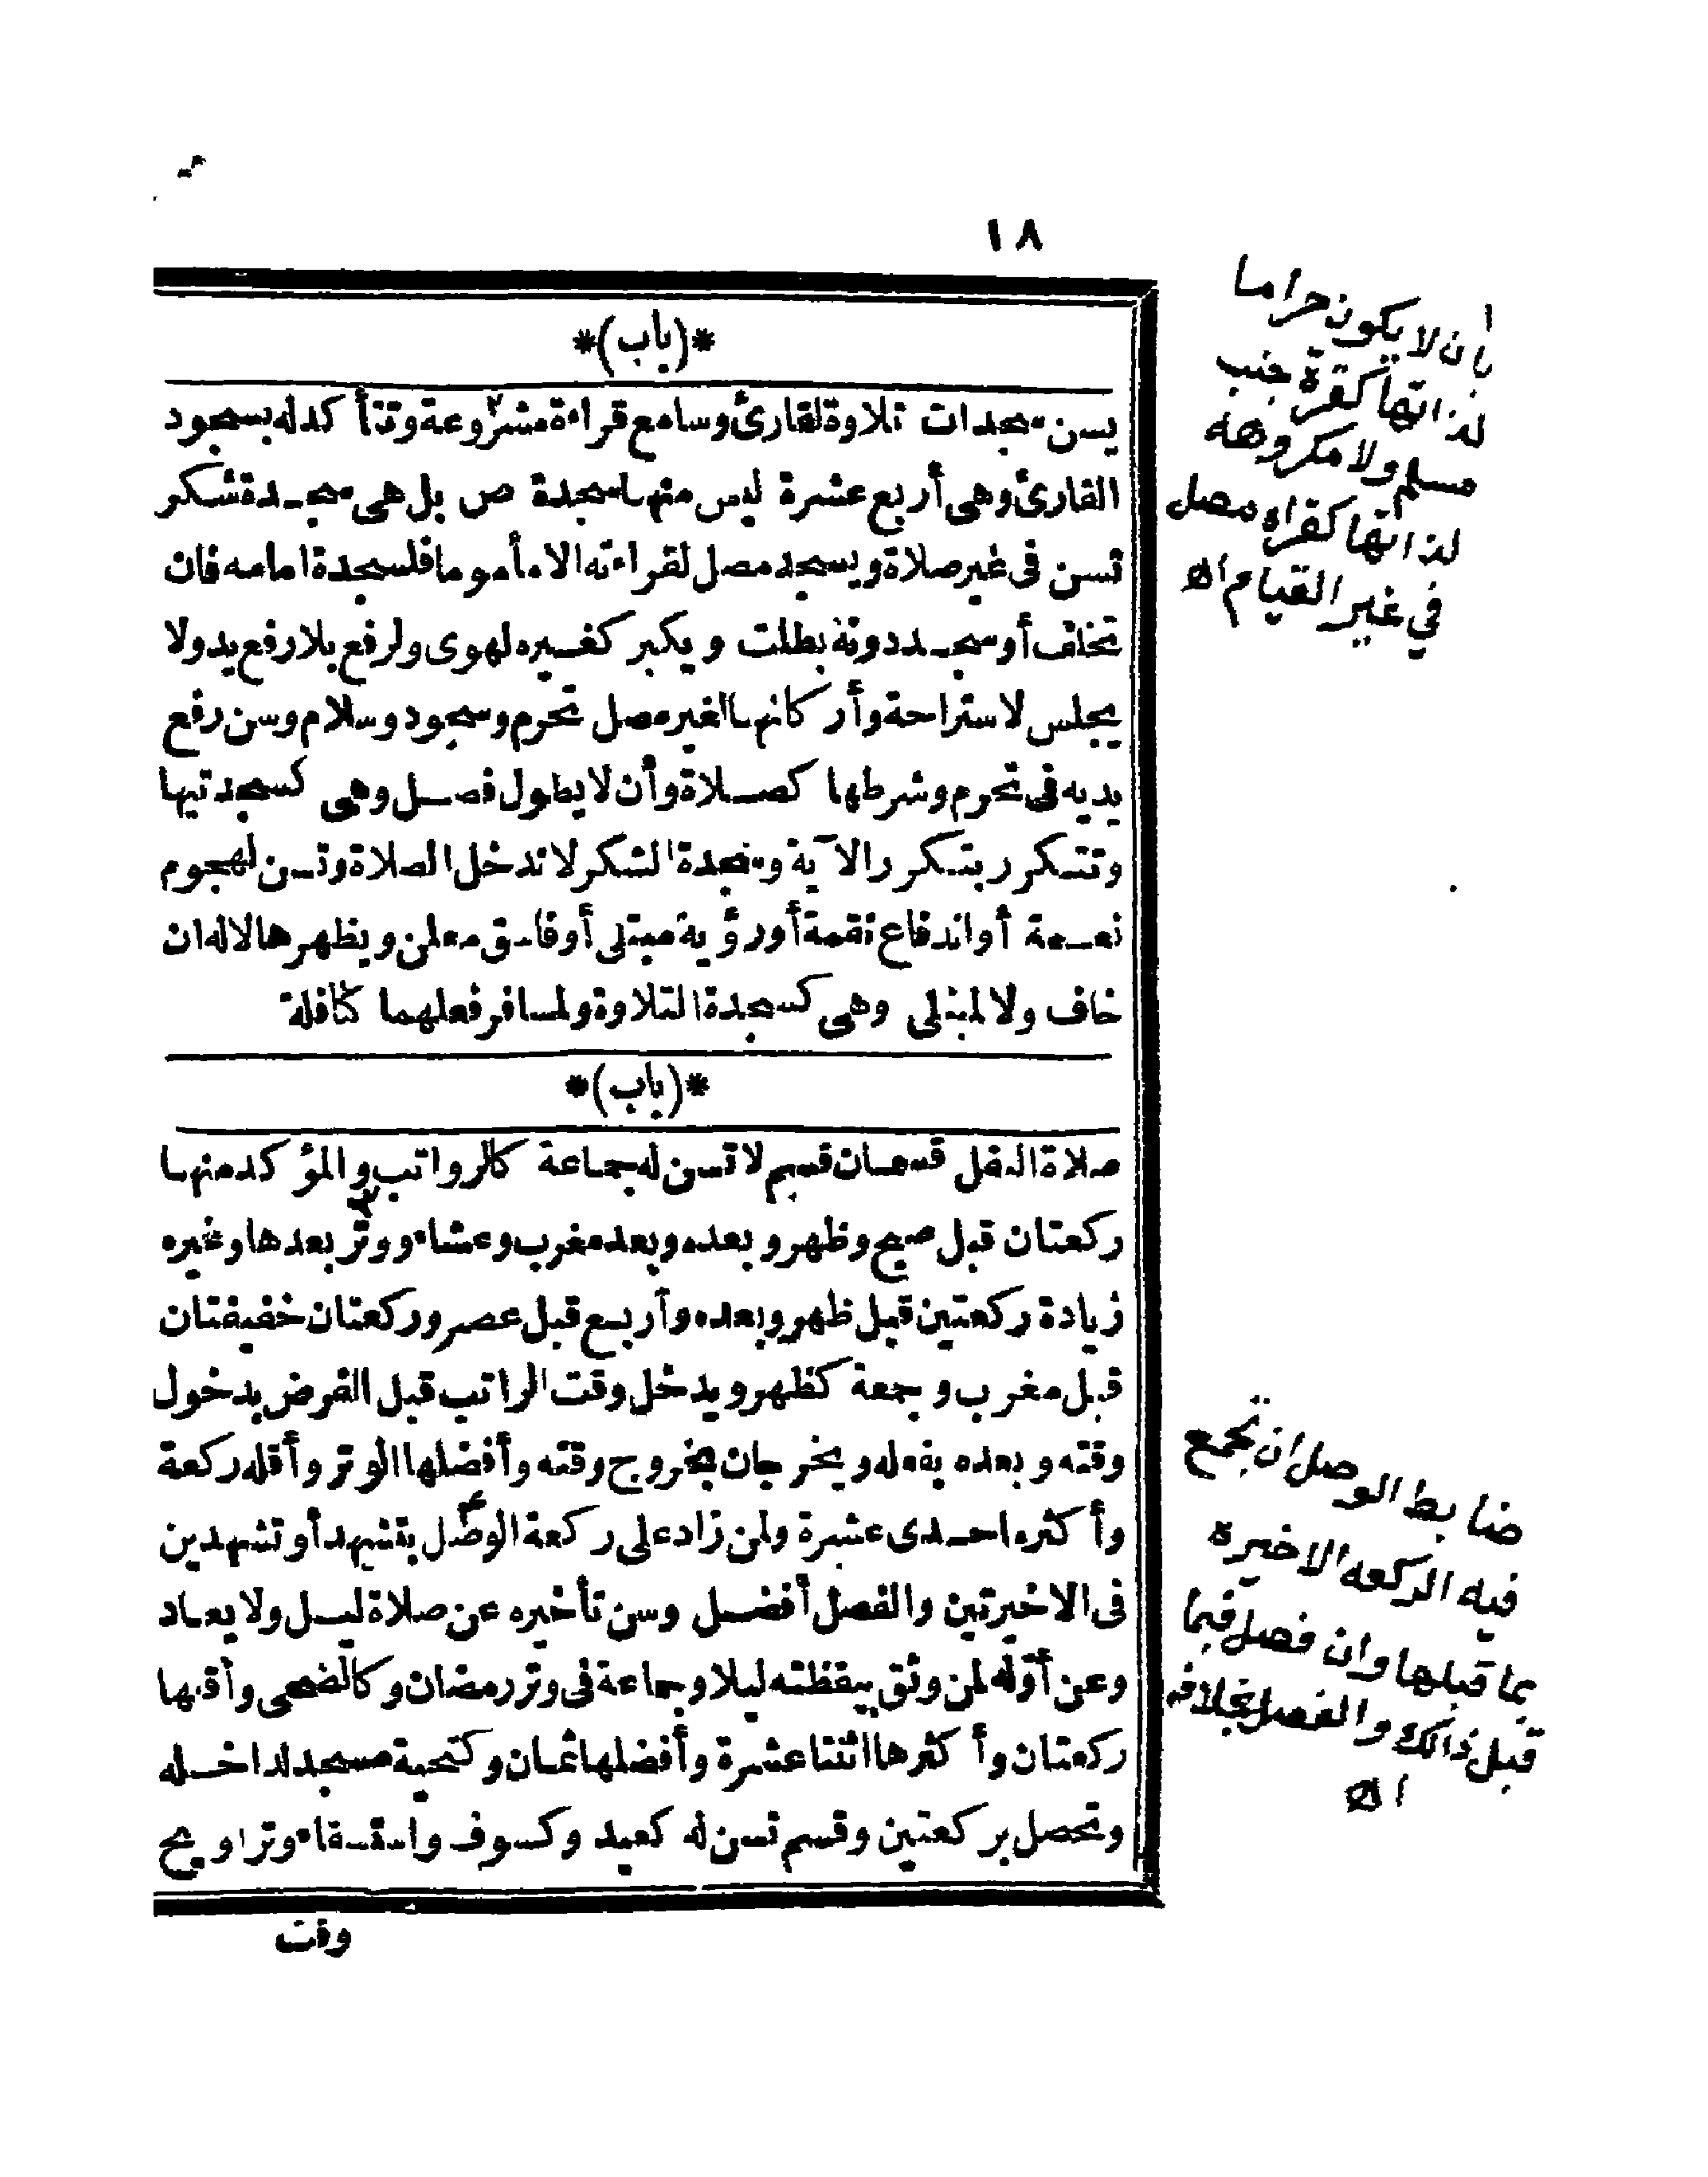 ١٨
*(باب)*
يسن سجدات تلاوة لقارئ وسامع قراءة مشروعة وتتأكد له بسجود
القارئ وهى أربع عشرة ليس منها سجدة ص بل هى سجدة شكر
تسن فى غير صلاة ويسجد مصل لقراءته الا مأموما فلسجدة امامه فان
تخلف أو سجد دونه بطلت ويكبر كغيره لهوى ولرفع بلا رفع يد ولا
يجلس لاستراحة وأركانها لغير مصل تحرم وسجود وسلام وسن رفع
يديه فى تحرم وشرطها كصلاة وأن لا يطول فصل وهى كسجدتيها
وتتكرر بتكرر الآية وسجدة الشكر لا تدخل الصلاة وتسن لهجوم
نعمة أو اندفاع نقمة أو رؤية مبتلى أو فاسق معلن ويظهرها لا له ان
خاف ولا لمبتلى وهى كسجدة التلاوة ولمسافر فعلهما كنافلة
*(باب)*
صلاة النفل قسمان قسم لا تسن له جماعة كالرواتب والمؤكد منها
ركعتان قبل صبح وظهر وبعده وبعد مغرب وعشاء ووتر بعدها وغيره
زيادة ركعتين قبل ظهر وبعده وأربع قبل عصر وركعتان خفيفتان
قبل مغرب وجمعة كظهر ويدخل وقت الراتب قبل الفرض بدخول
وقته وبعده بفعله ويخرجان بخروج وقته وأفضلها الوتر وأقله ركعة
وأكثره احدى عشرة ولمن زاد على ركعة الوصل بتشهد أو تشهدين
فى الاخيرتين والفصل أفضل وسن تأخيره عن صلاة ليل ولا يعاد
وعن أوله لمن وثق بيقظته ليلا وجماعة فى وتر رمضان وكالضحى وأقلها
ركعتان وأكثرها اثنتا عشرة وأفضلها ثمان وكتحية مسجد لداخله
وتحصل بركعتين وقسم تسن له كعيد وكسوف واستسقاء وتراويح
وقت
بان لا يكون حراما
لذاتها كقرة جنب
مسلم ولا مكروهة
لذاتها كقراه مصل
في غير القيام اه
ضابط الوصل ان تجمع
فيه الركعه الاخيرة
بما قبلها وان فصل فيما
قبل ذالك والفصل بخلافه
اه